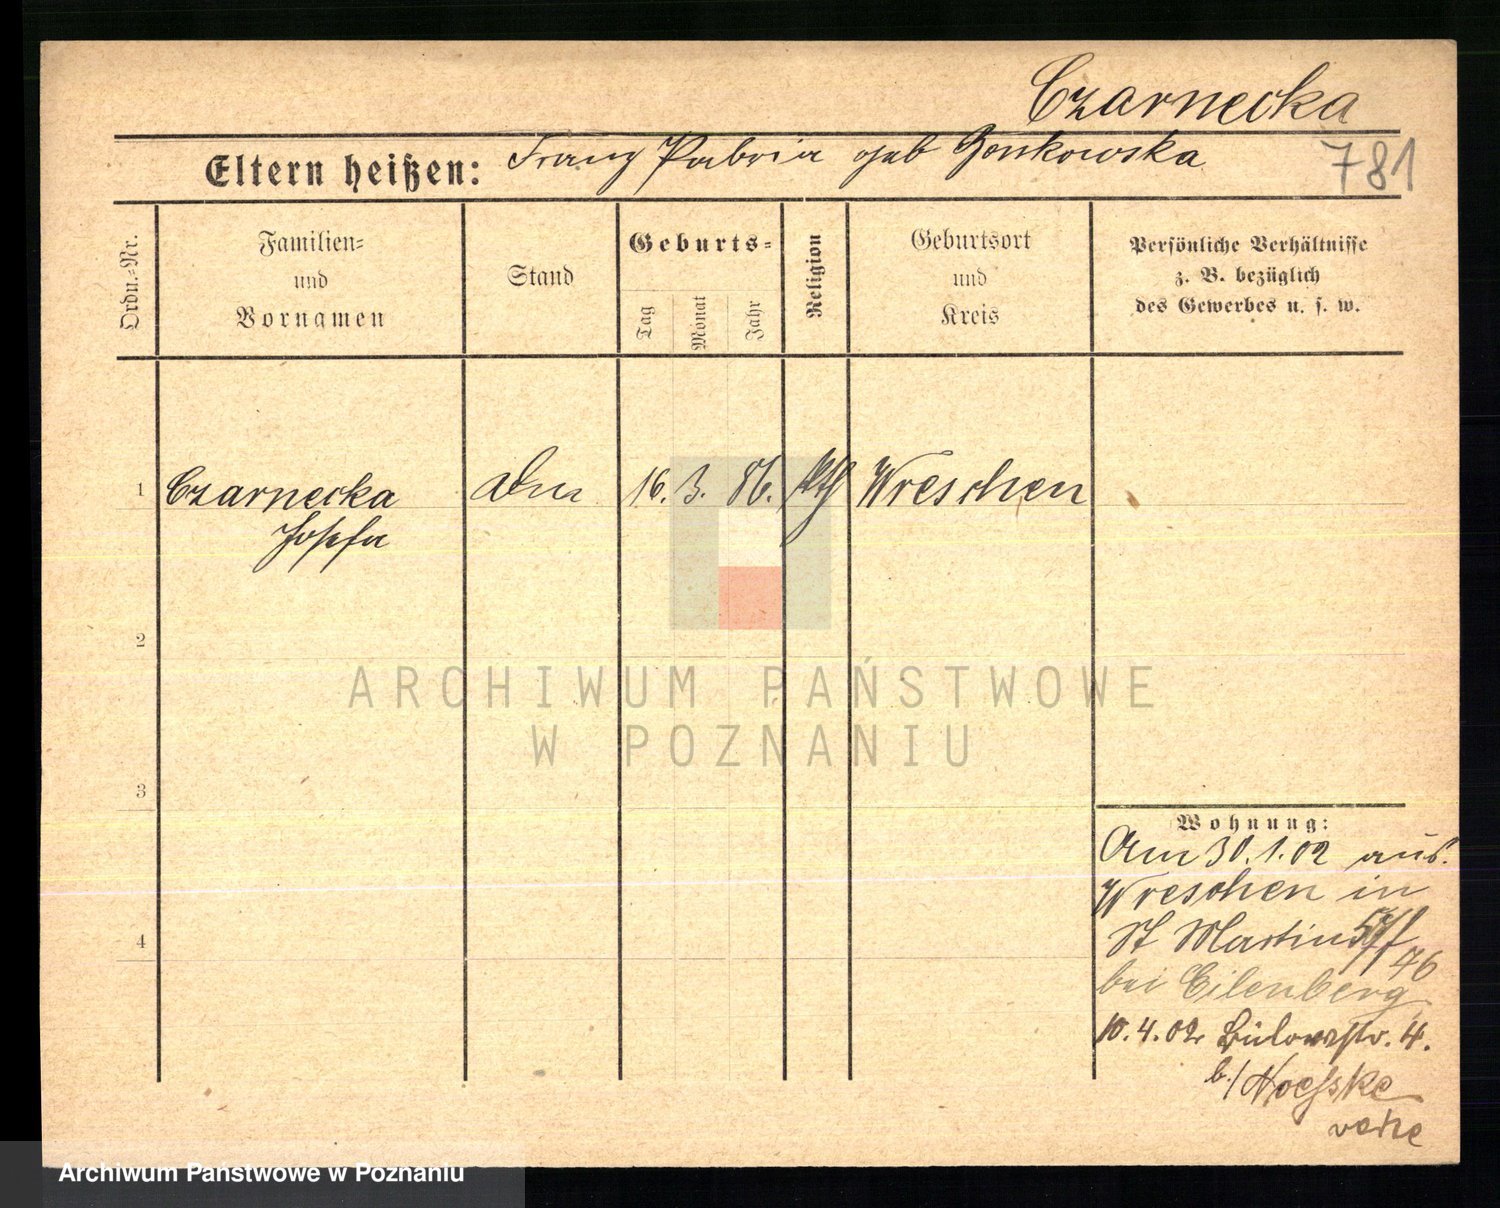 Czarnecka
781
Eltern heißen: Franz Pabria geb Gonkowska
Ordn.-Nr.
Familien-
und
Vornamen
Stand
Geburts-
Tag
Monat
Jahr
Religion
Geburtsort
und
Kreis
Persönliche Verhältnisse
z. B. bezüglich
des Gewerbes u. s. w.
1 Czarnecka 16. 3. 86. kth Wreschen
Josefa
2
ARCHIWUM PAŃSTWOWE
W POZNANIU
3
Wohnung:
Am 30.1.02 aus
Wreschen in
St Martin
4
46
bei Eilenberg
10.4.02 Bülowstr. 4.
b./
Archiwum Państwowe w Poznaniu